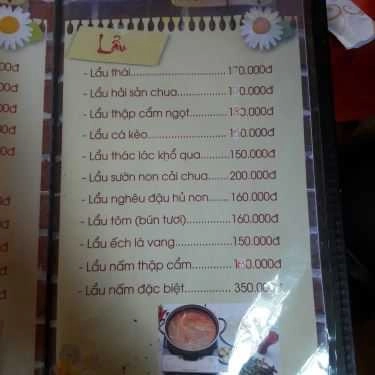 Lẩu
- Lẩu thái
- Lẩu hải sản chua
- Lẩu thập cẩm ngọt
- Lẩu cá kèo
- Lẩu thác lác khổ qua........150.000đ
- Lẩu sườn non cải chua......200.000đ
- Lẩu nghêu đậu hủ non.....160.000đ
- Lẩu tôm (bún tươi)............160.000đ
- Lẩu ếch lá vang...............150.000đ
- Lẩu nấm thập cẩm
- Lẩu nấm đặc biệt............ 350.000đ